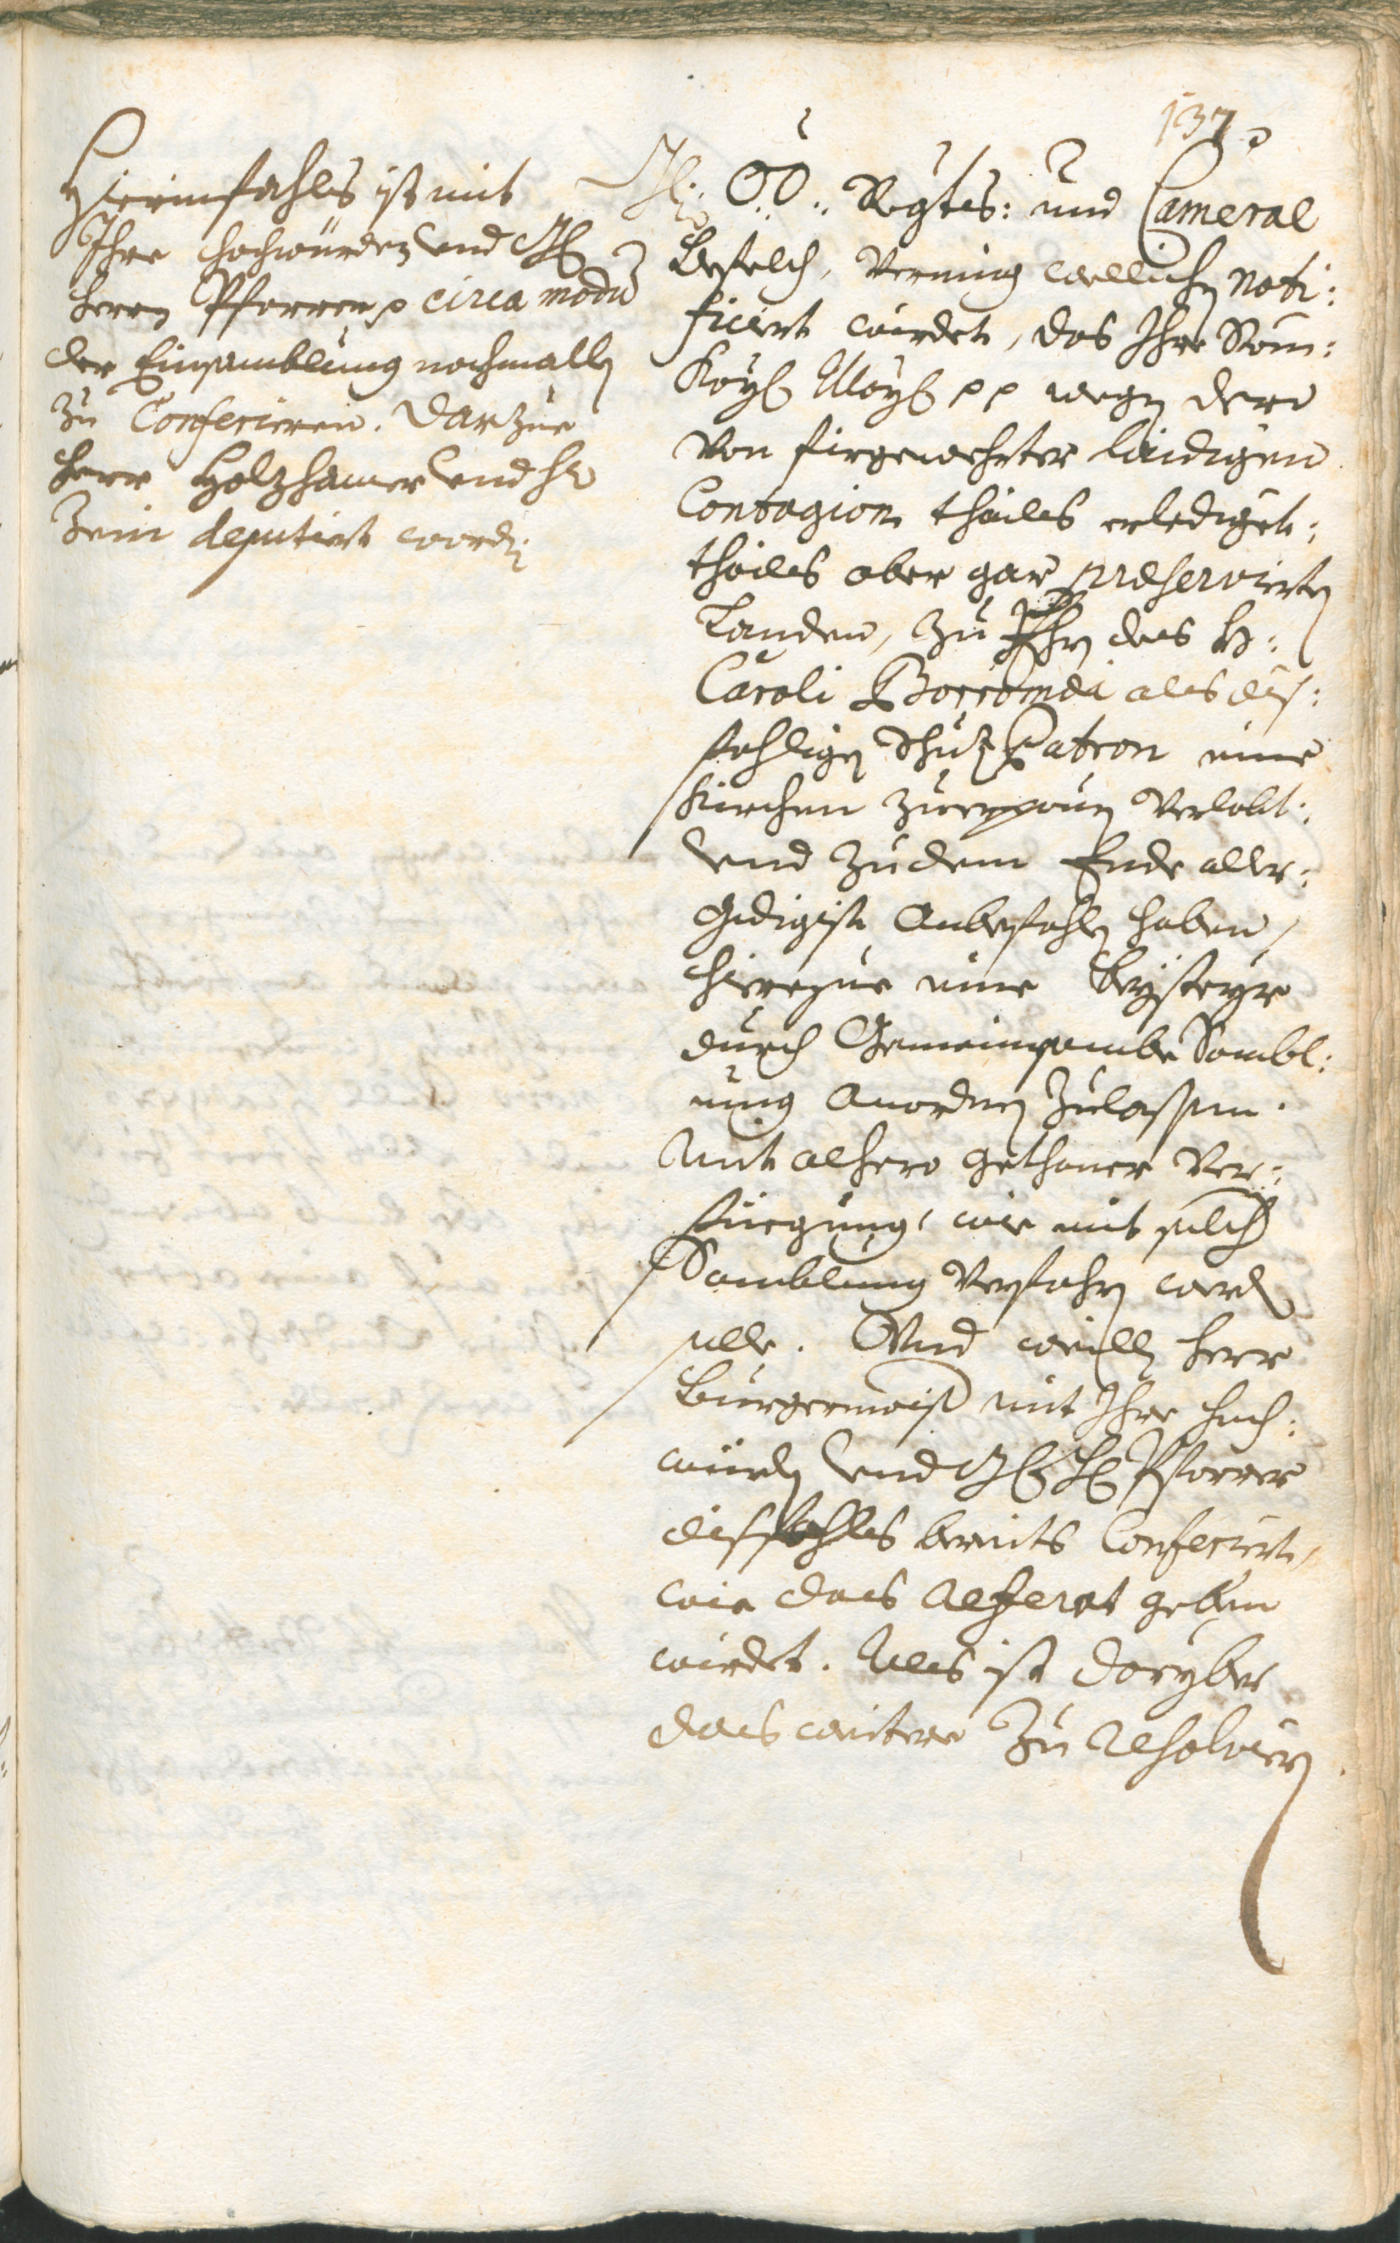 137
Hierinfahls ist mit
Ihre hochwürden und
herrn Pfarrern circa modu
der Einsamblung nochmalls
zu Conferieren. Darzue
Herr Holzhamer und H:
deputiert worden
O:Ö: Regts: und Cameral
Befelch, Vermüg wellichen Noti:
ficiert würdet, das Ihre Röm:
Kayl: Mayl: pp wegen dero
Von fürgewehrter laidigen
Contagion thailes erledigt:
thailes aber gar præservierten
Landen, zu Ehrn des H:
Caroli Borromæi als dis:
fahligen Schuz Patron eine
Kürchen zuerpauen Verlobt:
Und zu dem Ende aller:
Gdigist Anbefohlen haben,
hierzue eine beysteyr
durch Gemeinsambe Sambl:
ung Anordnen zulassen.
Mit alhero gethaner Ver:
fuegung, wie mit solcher
Samblung Verfahrn werden
solle. Und weillen Herr
Burgermaister mit Ihre hoch:
würden und Pfarrer
disfahls bereits Conferiert,
wie das Referat geben
würdet. Als ist daryber
das weitere zu resolviern